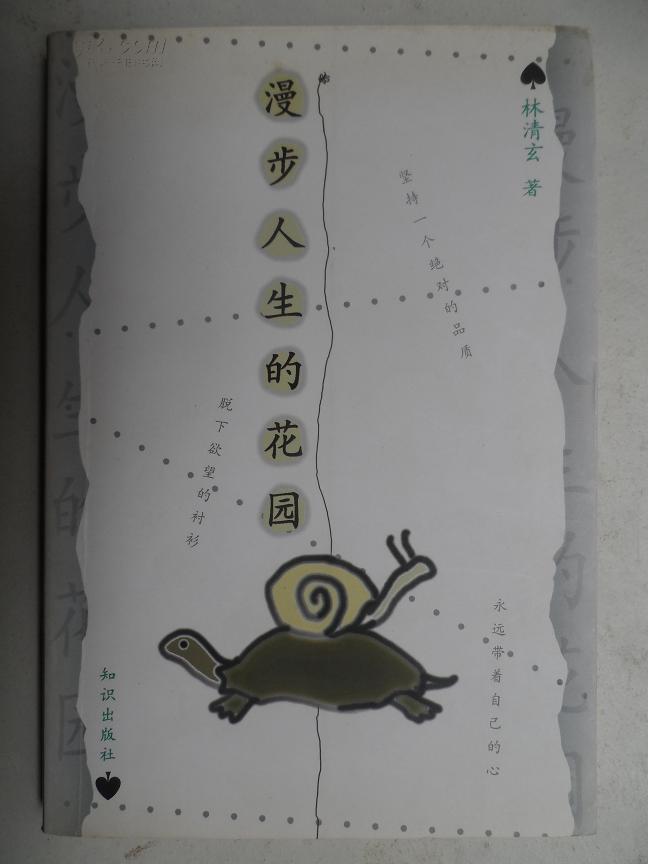 漫步人生的花园
林清玄 著
坚持一个绝对的品质
脱下欲望的衬衫
永远带着自己的心
知识出版社